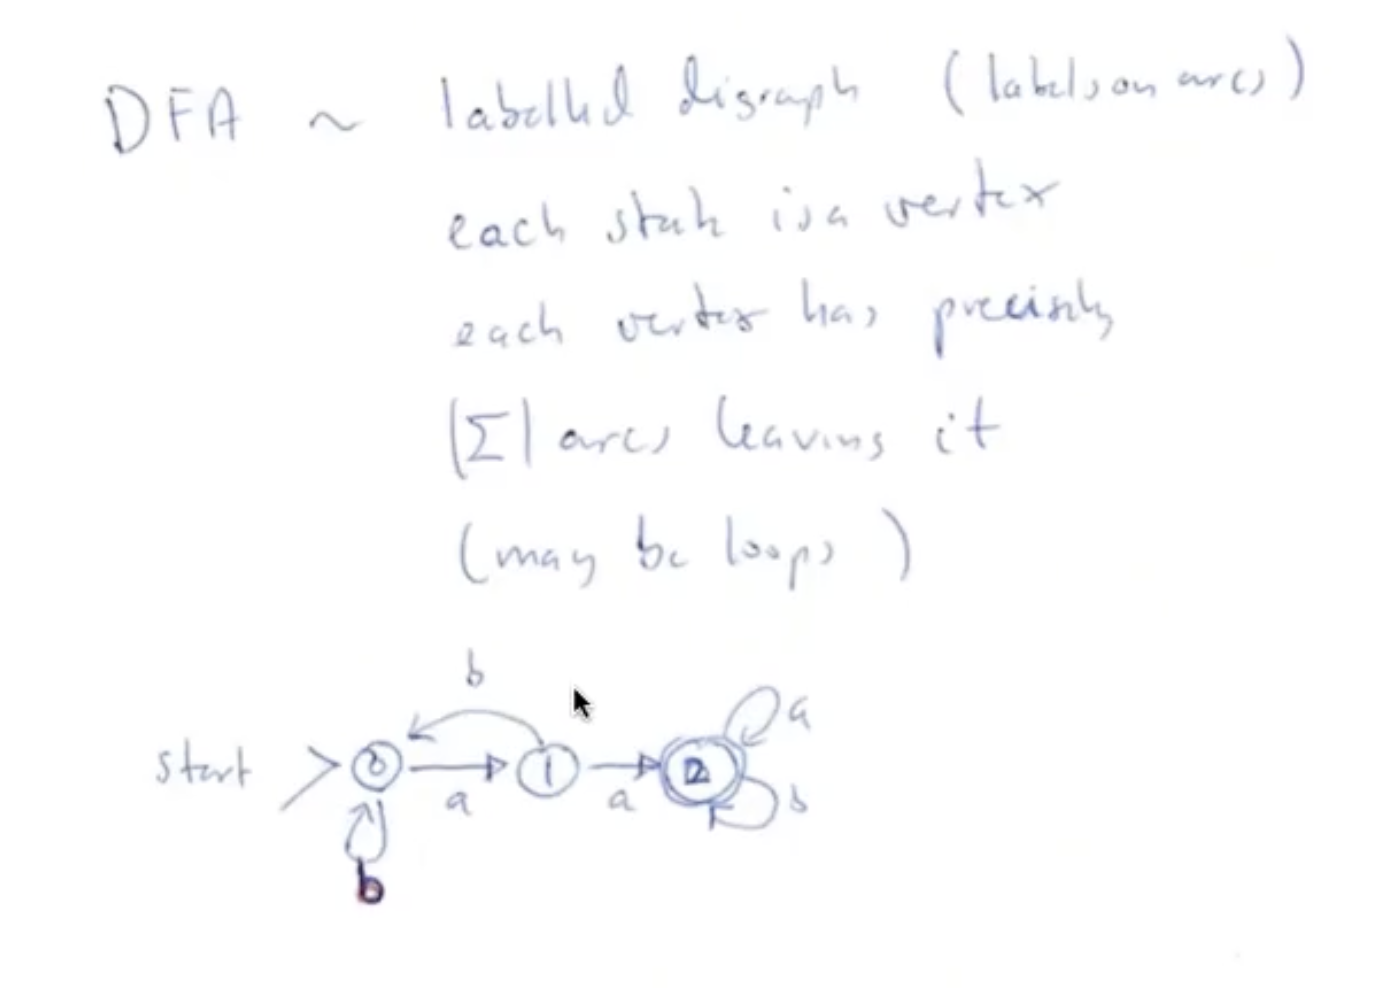 DFA ~ labelled digraph (labels on arcs)
each state is a vertex
each vertex has precisely
|Σ| arcs leaving it
(may be loops)
b
a
start 0 1 2
a a b
b